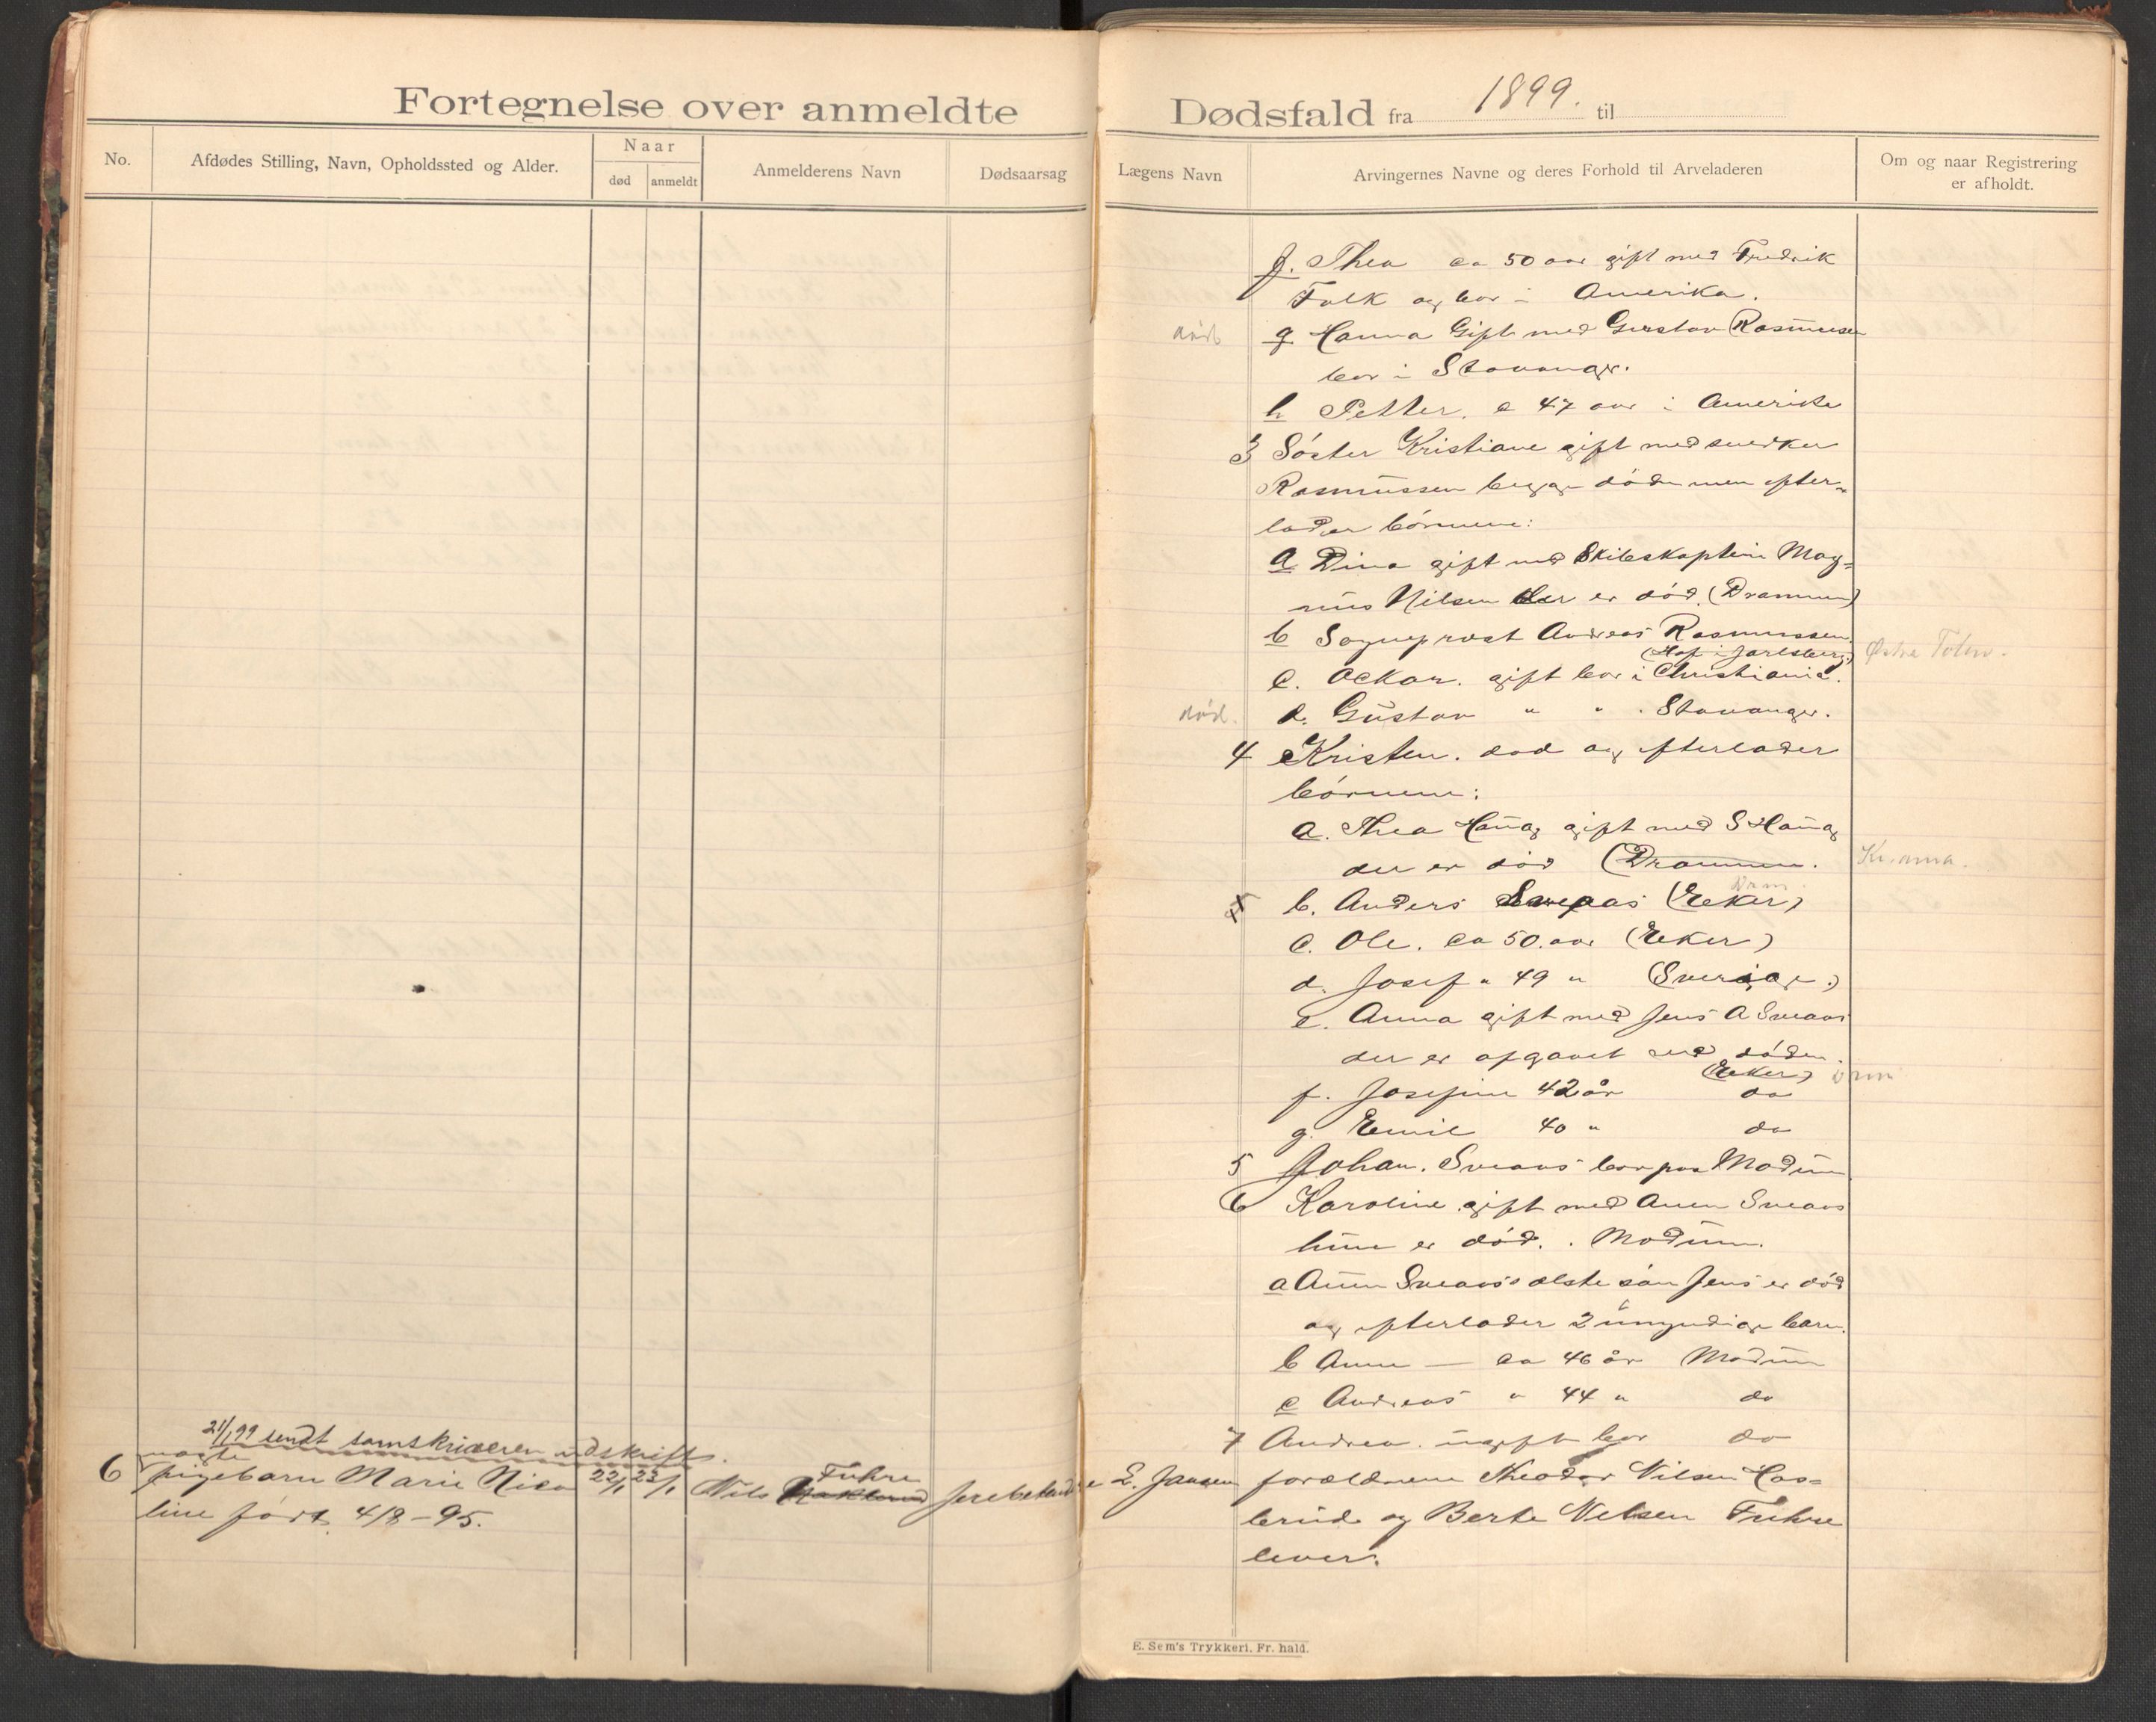 Fortegnelse over anmeldte Dødsfald fra 1899. til
No.
Afdødes Stilling, Navn, Opholdssted og Alder.
Naar
død
anmeldt
Anmelderens Navn
Dødsaarsag
Lægens Navn
Arvingernes Navne og deres Forhold til Arveladeren
Om og naar Registrering
er afholdt.
f. Thea ca 50 aar gift med Fredrik
Falk og bor i Amerika.
død g Hanna Gift med Gustav Rasmusen
bor i Stavanger.
h Petter. c 47 aar i Amerika
3 Søster Kristiane gift med snedker
Rasmussen begge døde men efter-
lader børnene:
a Dina gift med Skibskaptein Mag=
nus Nilsen der er død. (Drammen)
b Sogneprest Andreas Rasmussen.
(Hof i Jarlsberg) Østre Toten.
c. Oskar. gift bor i Christiania.
død. d. Gustav " " . Stavanger.
4 Kristen. død og efterlader
børnene:
a. Thea Haug gift med S Haug
der er død (Drammen. Kr.ania.
Drm
b. Anders Sveaas (Eker)
c. Ole. ca 50. aar (Eker)
d. Josef " 49 " (Sverige)
e. Anna gift med Jens A Sveaas
der er afgaaet ved døden.
(Eker) Drm
f. Josefine 42 år do
g. Emil 40 " do
5 Johan. Sveaas bor paa Modum
6 Karoline gift med Amun Sveaas
hun er død. . Modum.
a Amun Sveaas's ælste søn Jens er død
og efterlader 2 umyndige barn.
b Anne — ca 46 år Modum
c Andreas " 44 " do
7 Andrea. ugift bor do
21/1 99 sendt sorenskriveren udskrift.
ægte
6 pigebarn Marie Nico 22/1 23/1 Nils Fuhre Jernbetændelse L. Jansen forældrene Theodor Nilsen Has=
line født 4/8 - 95. brud og Berte Nilsen Fuhre
lever.
E. Sem's Trykkeri. Fr. hald.